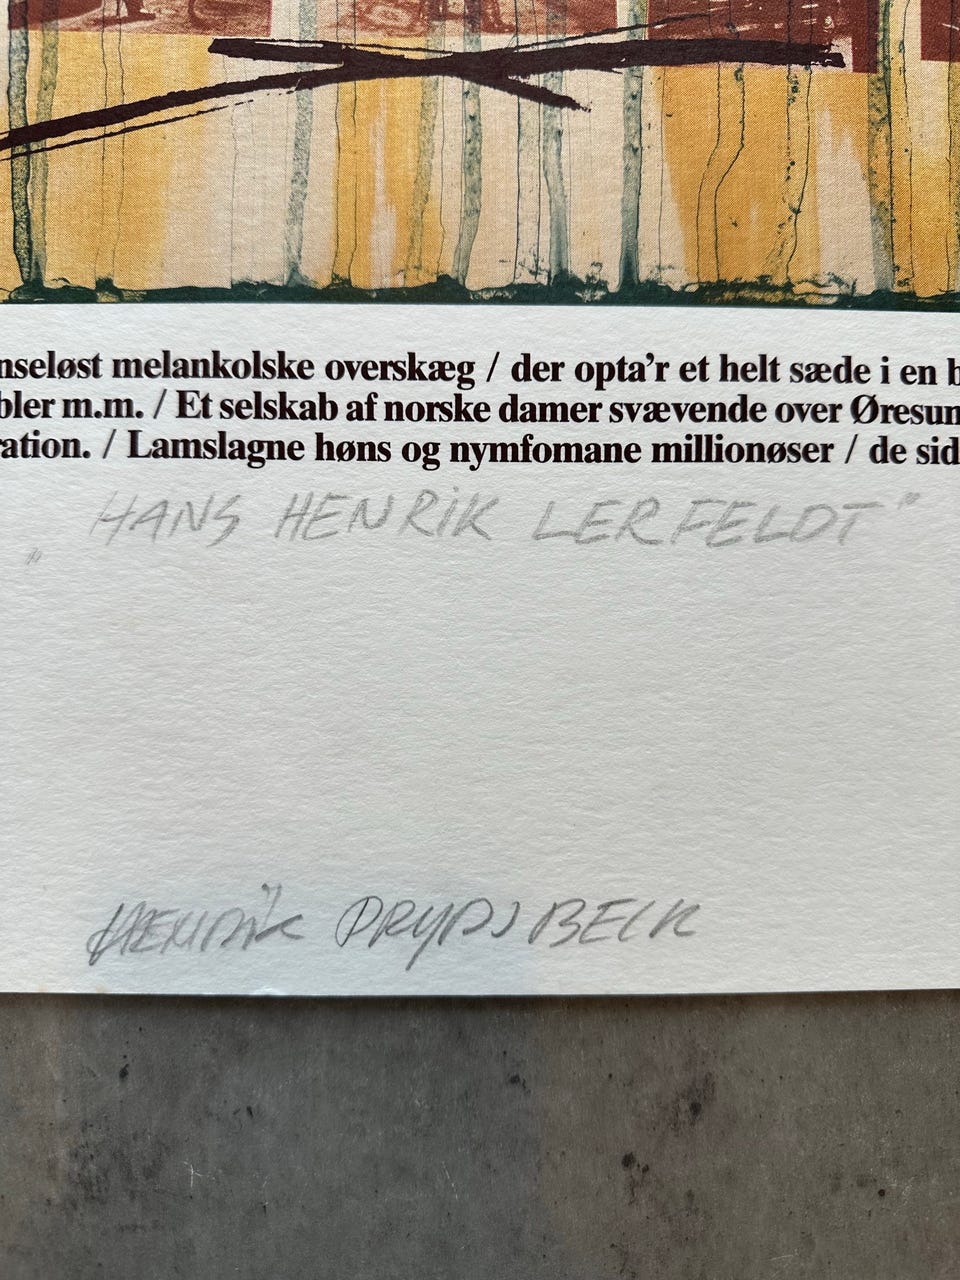 nseløst melankolske overskæg / der opta'r et helt sæde i en b
bler m.m. / Et selskab af norske damer svævende over Øresun
ration. / Lamslagne høns og nymfomane millionøser / de sid
„HANS HENRIK LERFELDT"
HENRIK